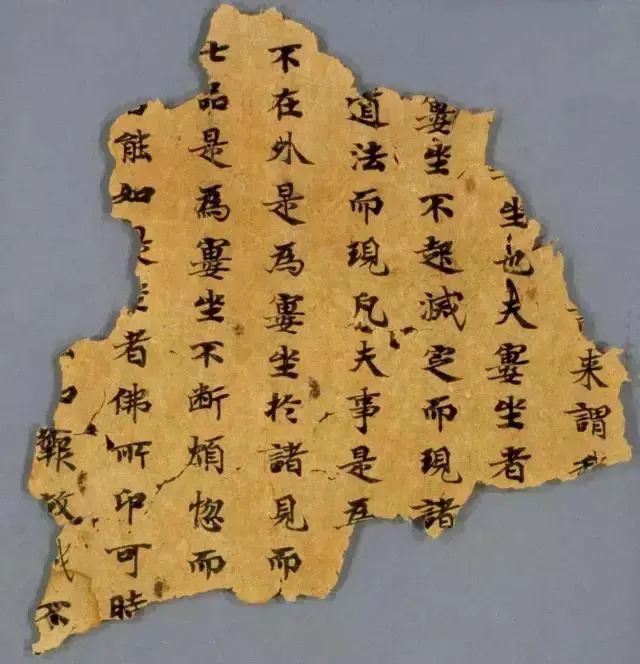 来謂
坐也夫宴坐者
宴坐不起滅定而現諸
道法而現凡夫事是
不在外是為宴坐於諸見而
七品是為宴坐不断煩惱而
能如坐者佛所印可時
報故我不